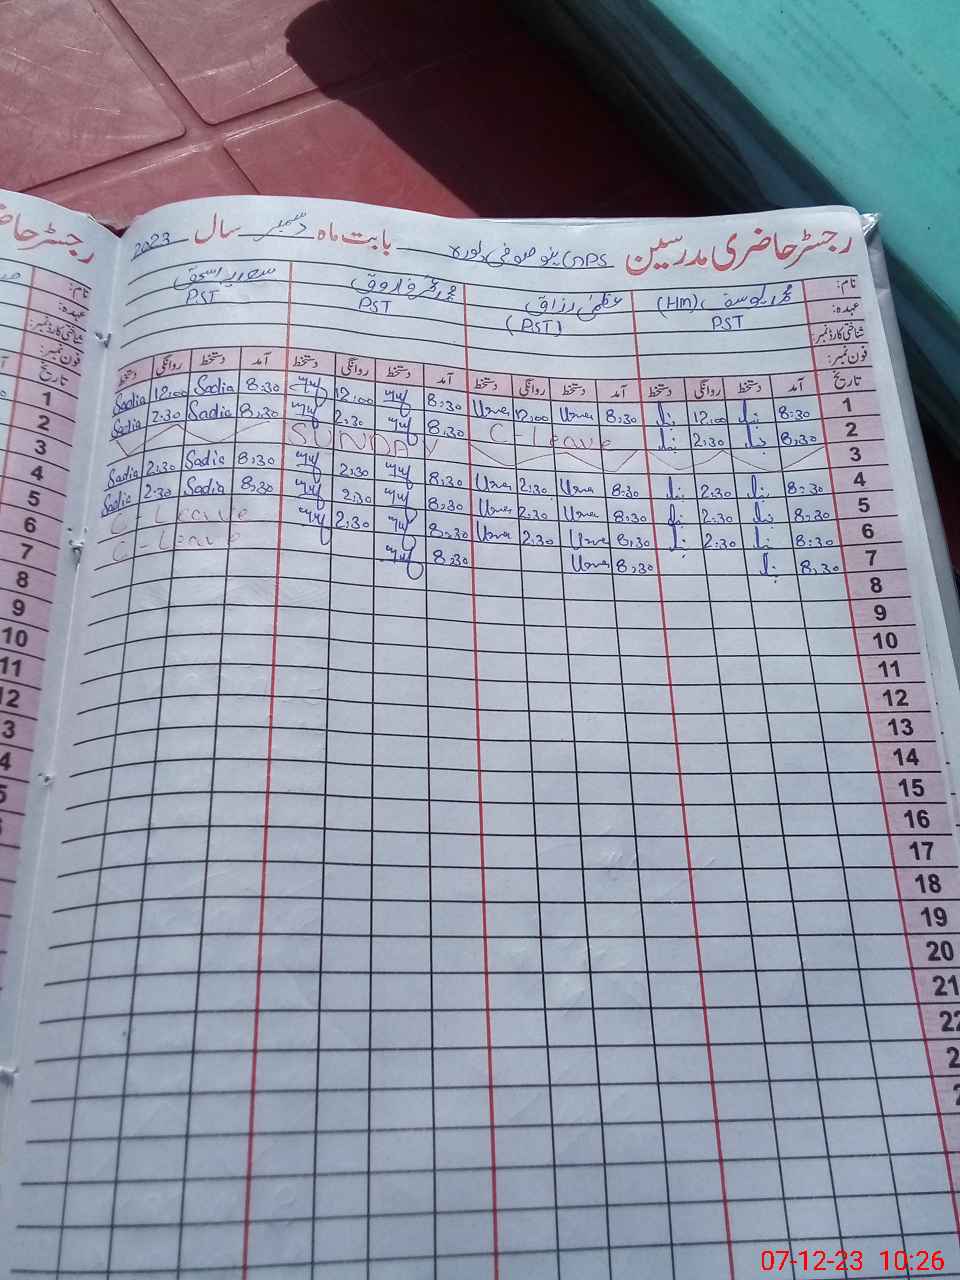 رجسٹر حاضری مدرسین GPS بابت ماہ دسمبر سال 2023
نام: محمد یوسف (Hm) عظمیٰ رزاق محمد عمر فاروق سعدیہ اسحق
عہدہ: PST (PST) PST PST
شناختی کارڈ نمبر:
فون نمبر:
تاریخ آمد دستخط روانگی دستخط آمد دستخط روانگی دستخط آمد دستخط روانگی دستخط آمد دستخط روانگی دستخط
1 8:30 12:00 8:30 Uzma 12:00 Uzma 8:30 12:00 8:30 Sadia 12:00 Sadia
2 8:30 2:30 C-Leave 8:30 2:30 8:30 Sadia 2:30 Sadia
3 SUNDAY
4 8:30 2:30 8:30 Uzma 2:30 Uzma 8:30 2:30 8:30 Sadia 2:30 Sadia
5 8:30 2:30 8:30 Uzma 2:30 Uzma 8:30 2:30 8:30 Sadia 2:30 Sadia
6 8:30 2:30 8:30 Uzma 2:30 Uzma 8:30 2:30 C-Leave
7 8:30 8:30 Uzma 8:30 C-Leave
8
9
10
11
12
13
14
15
16
17
18
19
20
21
22
07-12-23 10:26